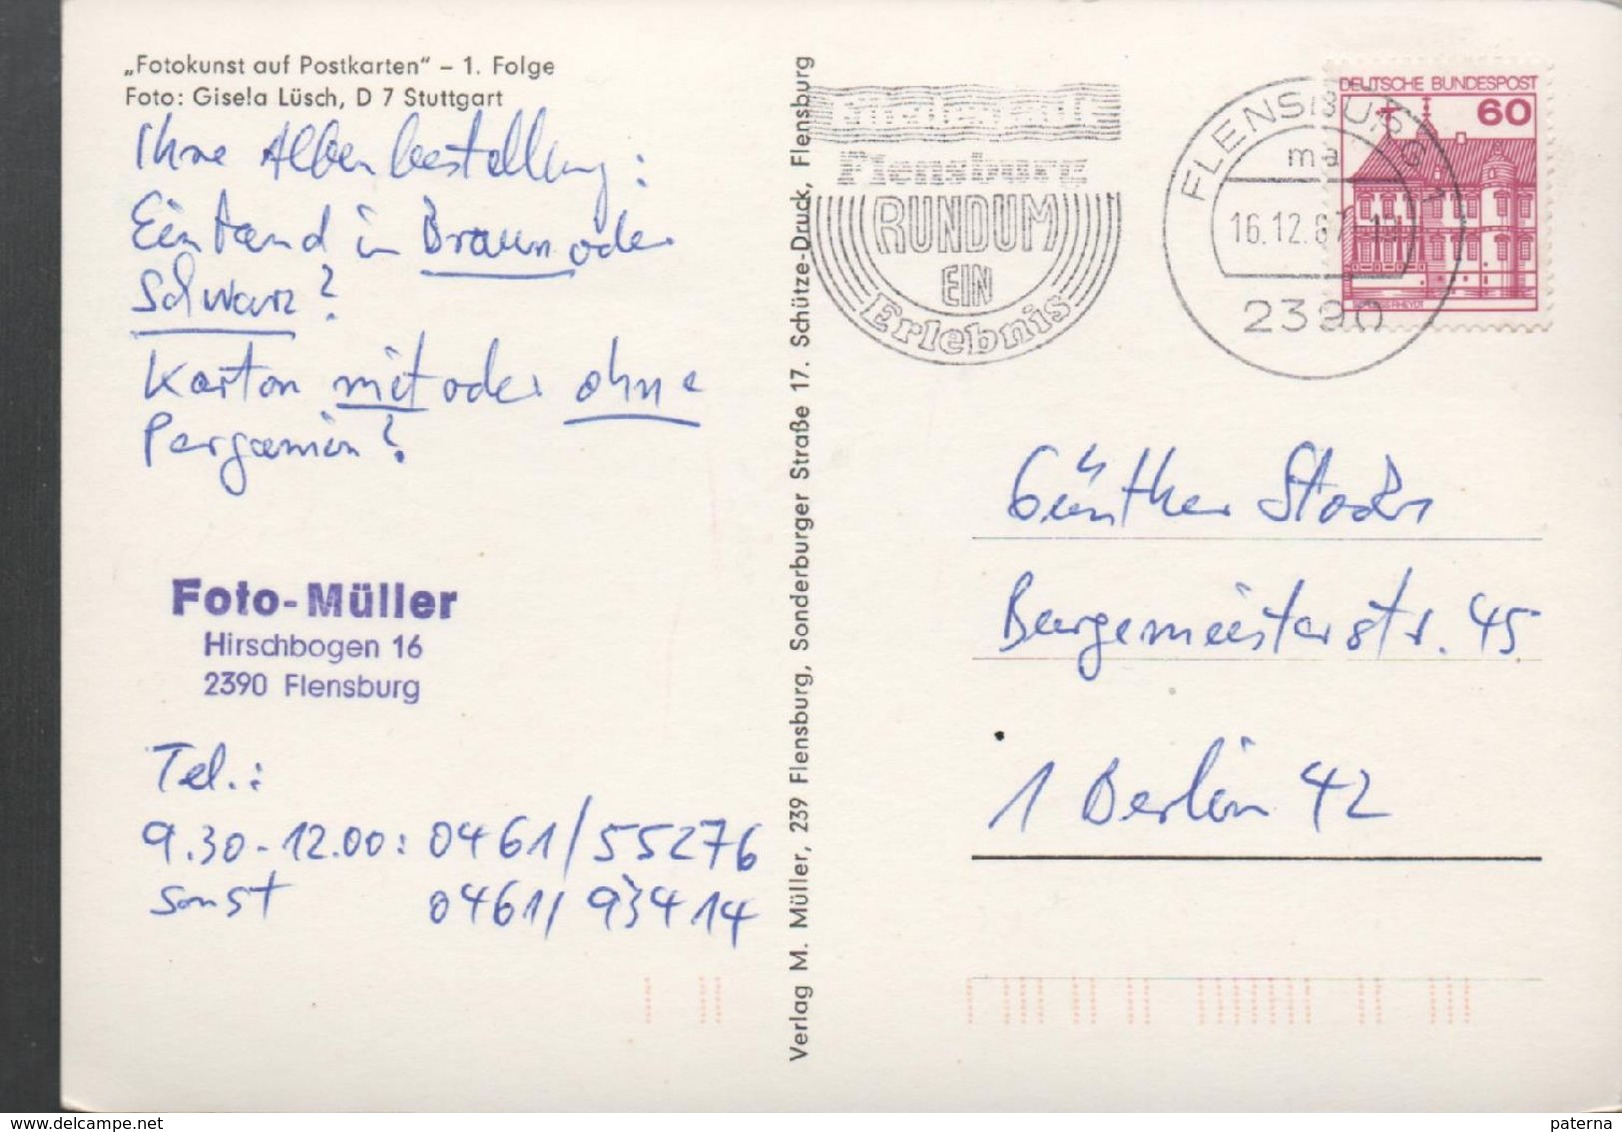 „Fotokunst auf Postkarten“ – 1. Folge
Foto: Gisela Lüsch, D 7 Stuttgart
Ihre Albenbestellung:
Einband in Braun oder
Schwarz?
Karton mit oder ohne
Pergamin?
Foto-Müller
Hirschbogen 16
2390 Flensburg
Tel.:
9.30-12.00: 0461/55276
sonst 0461/93414
Verlag M. Müller, 239 Flensburg, Sonderburger Straße 17. Schütze-Druck, Flensburg
Flensburg
RUNDUM
EIN
Erlebnis
FLENSBURG 1
ma
16.12.87
2390
DEUTSCHE BUNDESPOST
60
Günther
Burgemeisterstr. 45
1 Berlin 42
paterna